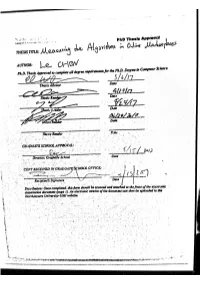 PhD Thesis Approval
THESIS TITLE: Measuring the Algorithms in Online Marketplaces
AUTHOR: Le CHEN
Ph.D. Thesis approved to complete all degree requirements for the Ph.D. Degree in Computer Science
5/2/17
Thesis Advisor Date
Thesis Reader Date
Thesis Reader Date
Thesis Reader Date
Thesis Reader Date
GRADUATE SCHOOL APPROVAL:
Director, Graduate School Date
COPY RECEIVED IN GRADUATE SCHOOL OFFICE:
Recipient's Signature Date
Distribution: Once completed, this form should be scanned and attached to the front of the electronic
dissertation document (page 1). An electronic version of the document can then be uploaded to the
Northeastern University-UMI website.